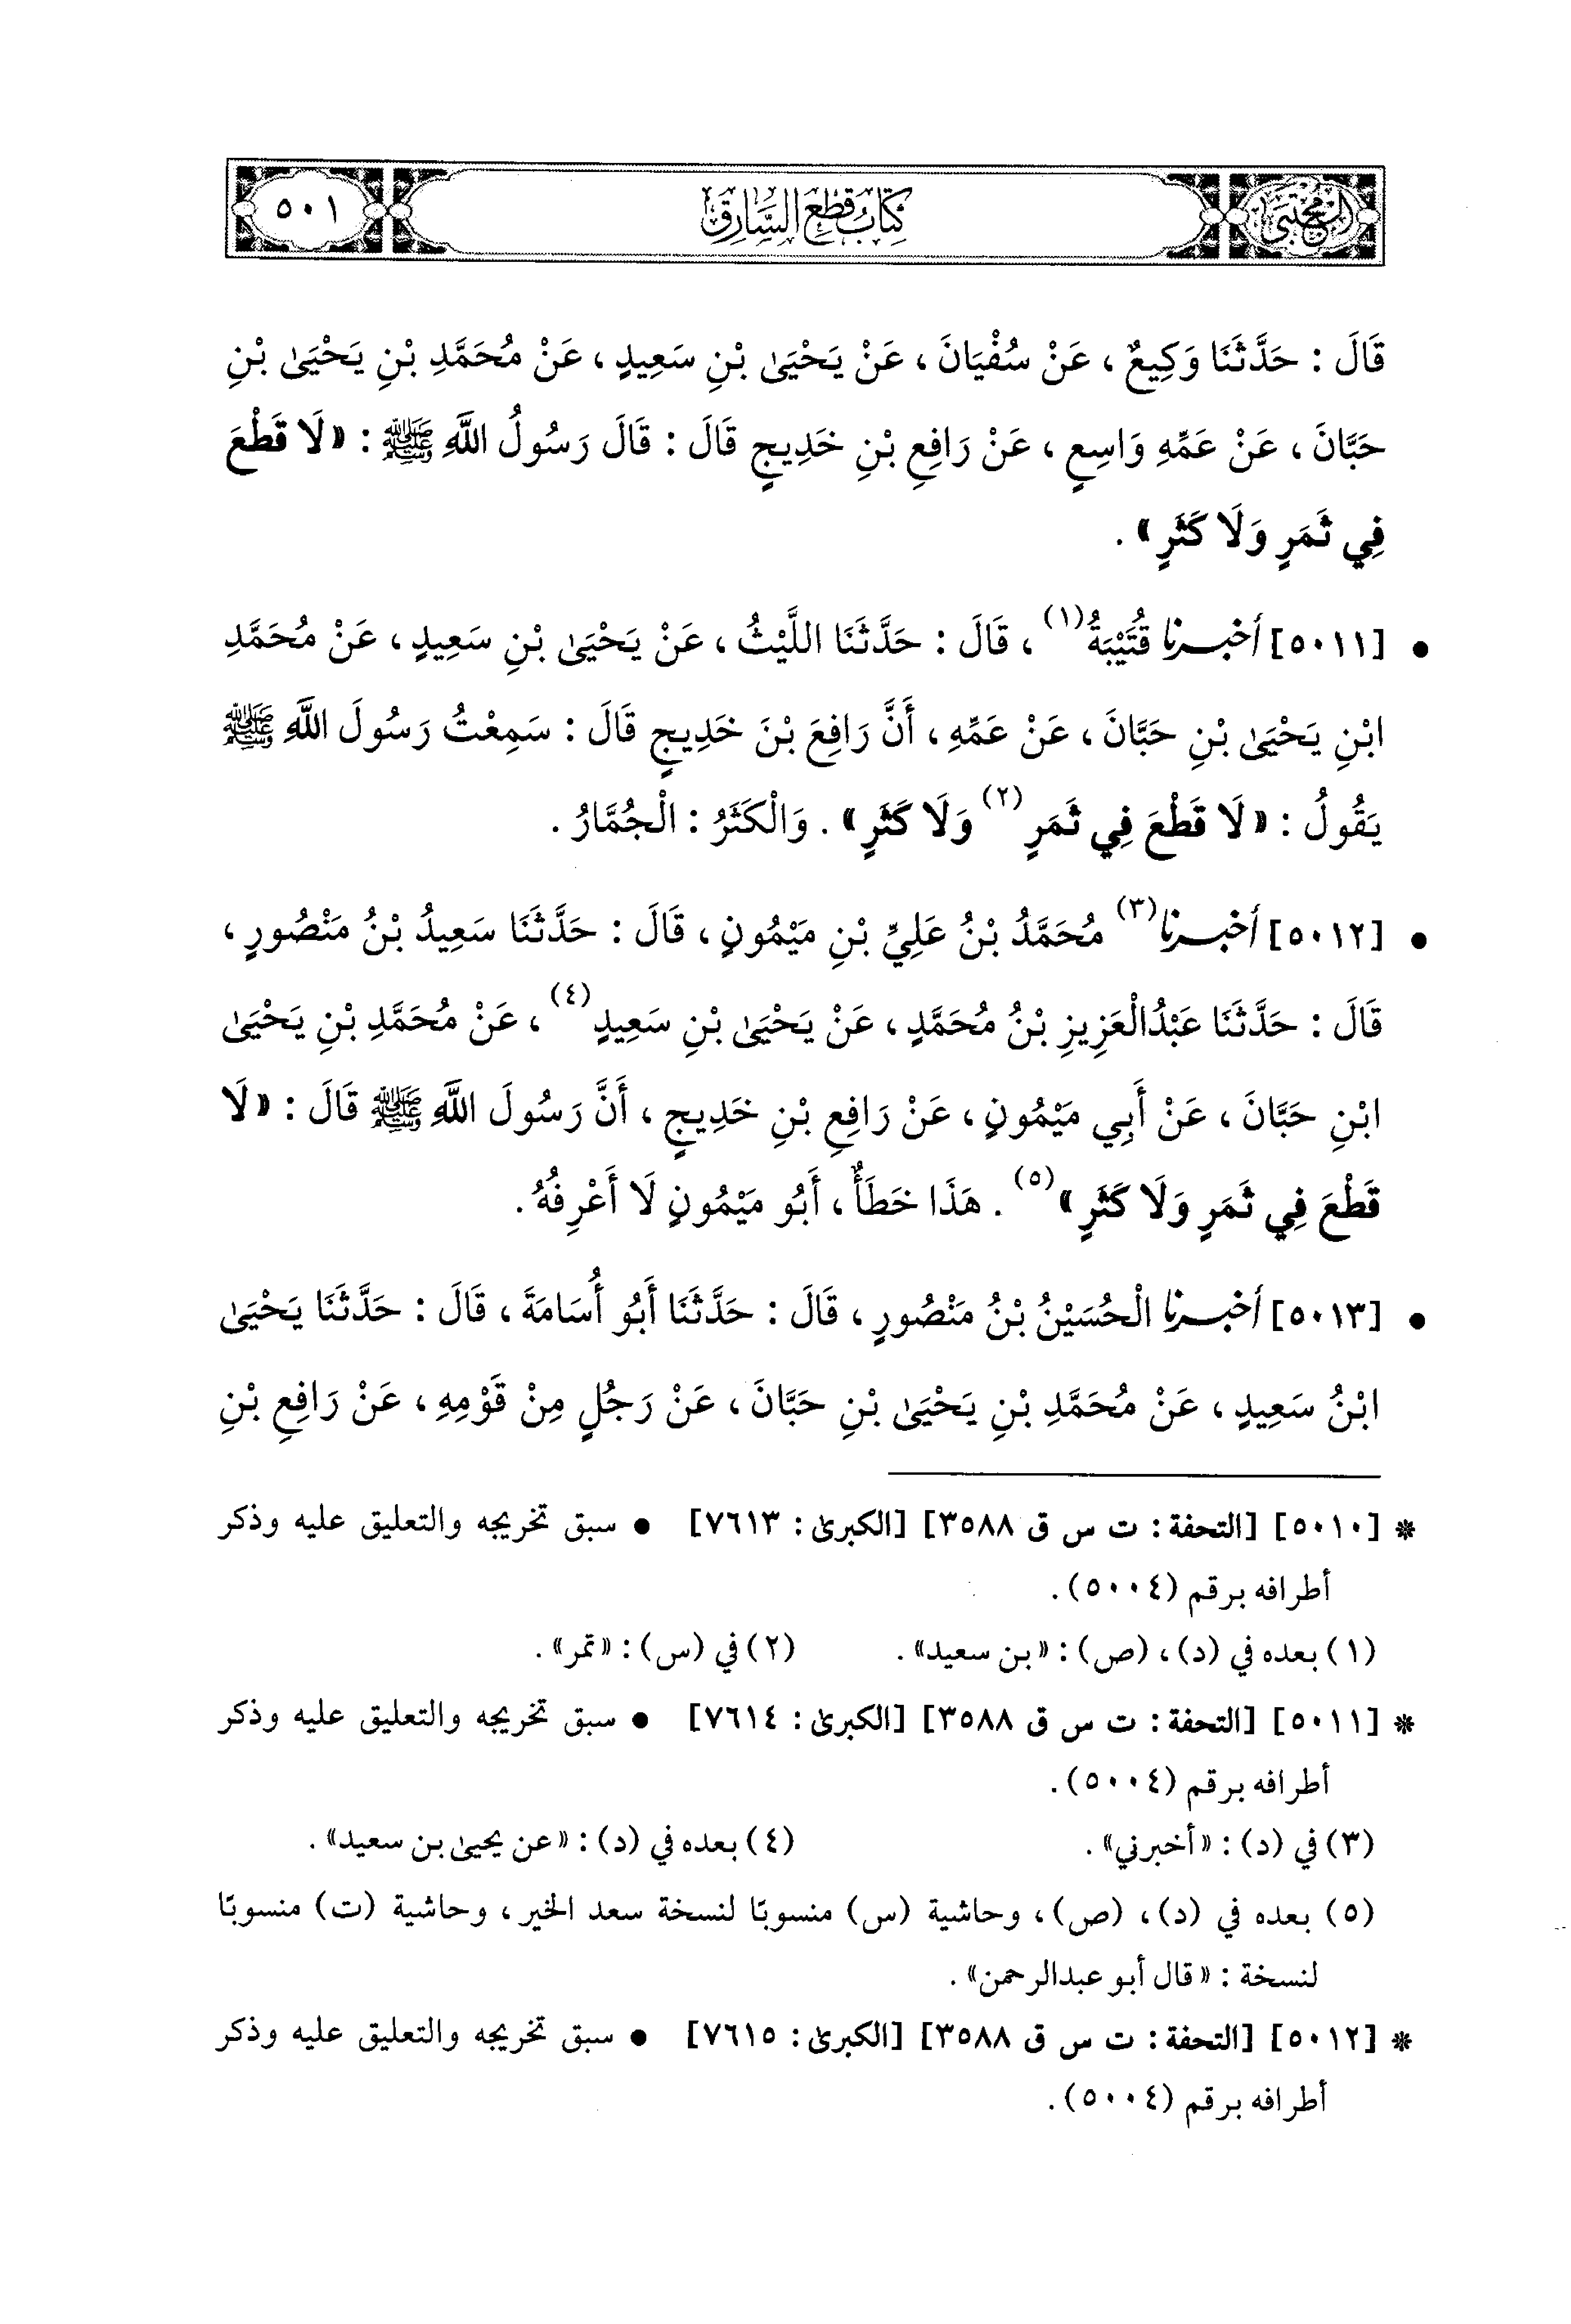 المجتبى
كتاب قطع السارق
٥٠١
قَالَ : حَدَّثَنَا وَكِيعٌ ، عَنْ سُفْيَانَ ، عَنْ يَحْيَىٰ بْنِ سَعِيدٍ ، عَنْ مُحَمَّدِ بْنِ يَحْيَىٰ بْنِ
حَبَّانَ ، عَنْ عَمِّهِ وَاسِعٍ ، عَنْ رَافِعِ بْنِ خَدِيجٍ قَالَ : قَالَ رَسُولُ اللَّهِ ﷺ : «لَا قَطْعَ
فِي ثَمَرٍ وَلَا كَثَرٍ» .
• [٥٠١١] أخبرنا قُتَيْبَةُ(١) ، قَالَ : حَدَّثَنَا اللَّيْثُ ، عَنْ يَحْيَىٰ بْنِ سَعِيدٍ ، عَنْ مُحَمَّدِ
ابْنِ يَحْيَىٰ بْنِ حَبَّانَ ، عَنْ عَمِّهِ ، أَنَّ رَافِعَ بْنَ خَدِيجٍ قَالَ : سَمِعْتُ رَسُولَ اللَّهِ ﷺ
يَقُولُ : «لَا قَطْعَ فِي ثَمَرٍ(٢) وَلَا كَثَرٍ» . وَالْكَثَرُ : الْجُمَّارُ .
• [٥٠١٢] أخبرنا(٣) مُحَمَّدُ بْنُ عَلِيِّ بْنِ مَيْمُونٍ ، قَالَ : حَدَّثَنَا سَعِيدُ بْنُ مَنْصُورٍ ،
قَالَ : حَدَّثَنَا عَبْدُالْعَزِيزِ بْنُ مُحَمَّدٍ ، عَنْ يَحْيَىٰ بْنِ سَعِيدٍ(٤) ، عَنْ مُحَمَّدِ بْنِ يَحْيَىٰ
ابْنِ حَبَّانَ ، عَنْ أَبِي مَيْمُونٍ ، عَنْ رَافِعِ بْنِ خَدِيجٍ ، أَنَّ رَسُولَ اللَّهِ ﷺ قَالَ : «لَا
قَطْعَ فِي ثَمَرٍ وَلَا كَثَرٍ»(٥) . هَذَا خَطَأٌ ، أَبُو مَيْمُونٍ لَا أَعْرِفُهُ .
• [٥٠١٣] أخبرنا الْحُسَيْنُ بْنُ مَنْصُورٍ ، قَالَ : حَدَّثَنَا أَبُو أُسَامَةَ ، قَالَ : حَدَّثَنَا يَحْيَىٰ
ابْنُ سَعِيدٍ ، عَنْ مُحَمَّدِ بْنِ يَحْيَىٰ بْنِ حَبَّانَ ، عَنْ رَجُلٍ مِنْ قَوْمِهِ ، عَنْ رَافِعِ بْنِ
* [٥٠١٠] [التحفة : ت س ق ٣٥٨٨] [الكبرىٰ : ٧٦١٣] • سبق تخريجه والتعليق عليه وذكر
أطرافه برقم (٥٠٠٤) .
(١) بعده في (د) ، (ص) : «بن سعيد» . (٢) في (س) : «تمر» .
* [٥٠١١] [التحفة : ت س ق ٣٥٨٨] [الكبرىٰ : ٧٦١٤] • سبق تخريجه والتعليق عليه وذكر
أطرافه برقم (٥٠٠٤) .
(٣) في (د) : «أخبرني» . (٤) بعده في (د) : «عن يحيىٰ بن سعيد» .
(٥) بعده في (د) ، (ص) ، وحاشية (س) منسوبًا لنسخة سعد الخير ، وحاشية (ت) منسوبًا
لنسخة : «قال أبو عبدالرحمن» .
* [٥٠١٢] [التحفة : ت س ق ٣٥٨٨] [الكبرىٰ : ٧٦١٥] • سبق تخريجه والتعليق عليه وذكر
أطرافه برقم (٥٠٠٤) .